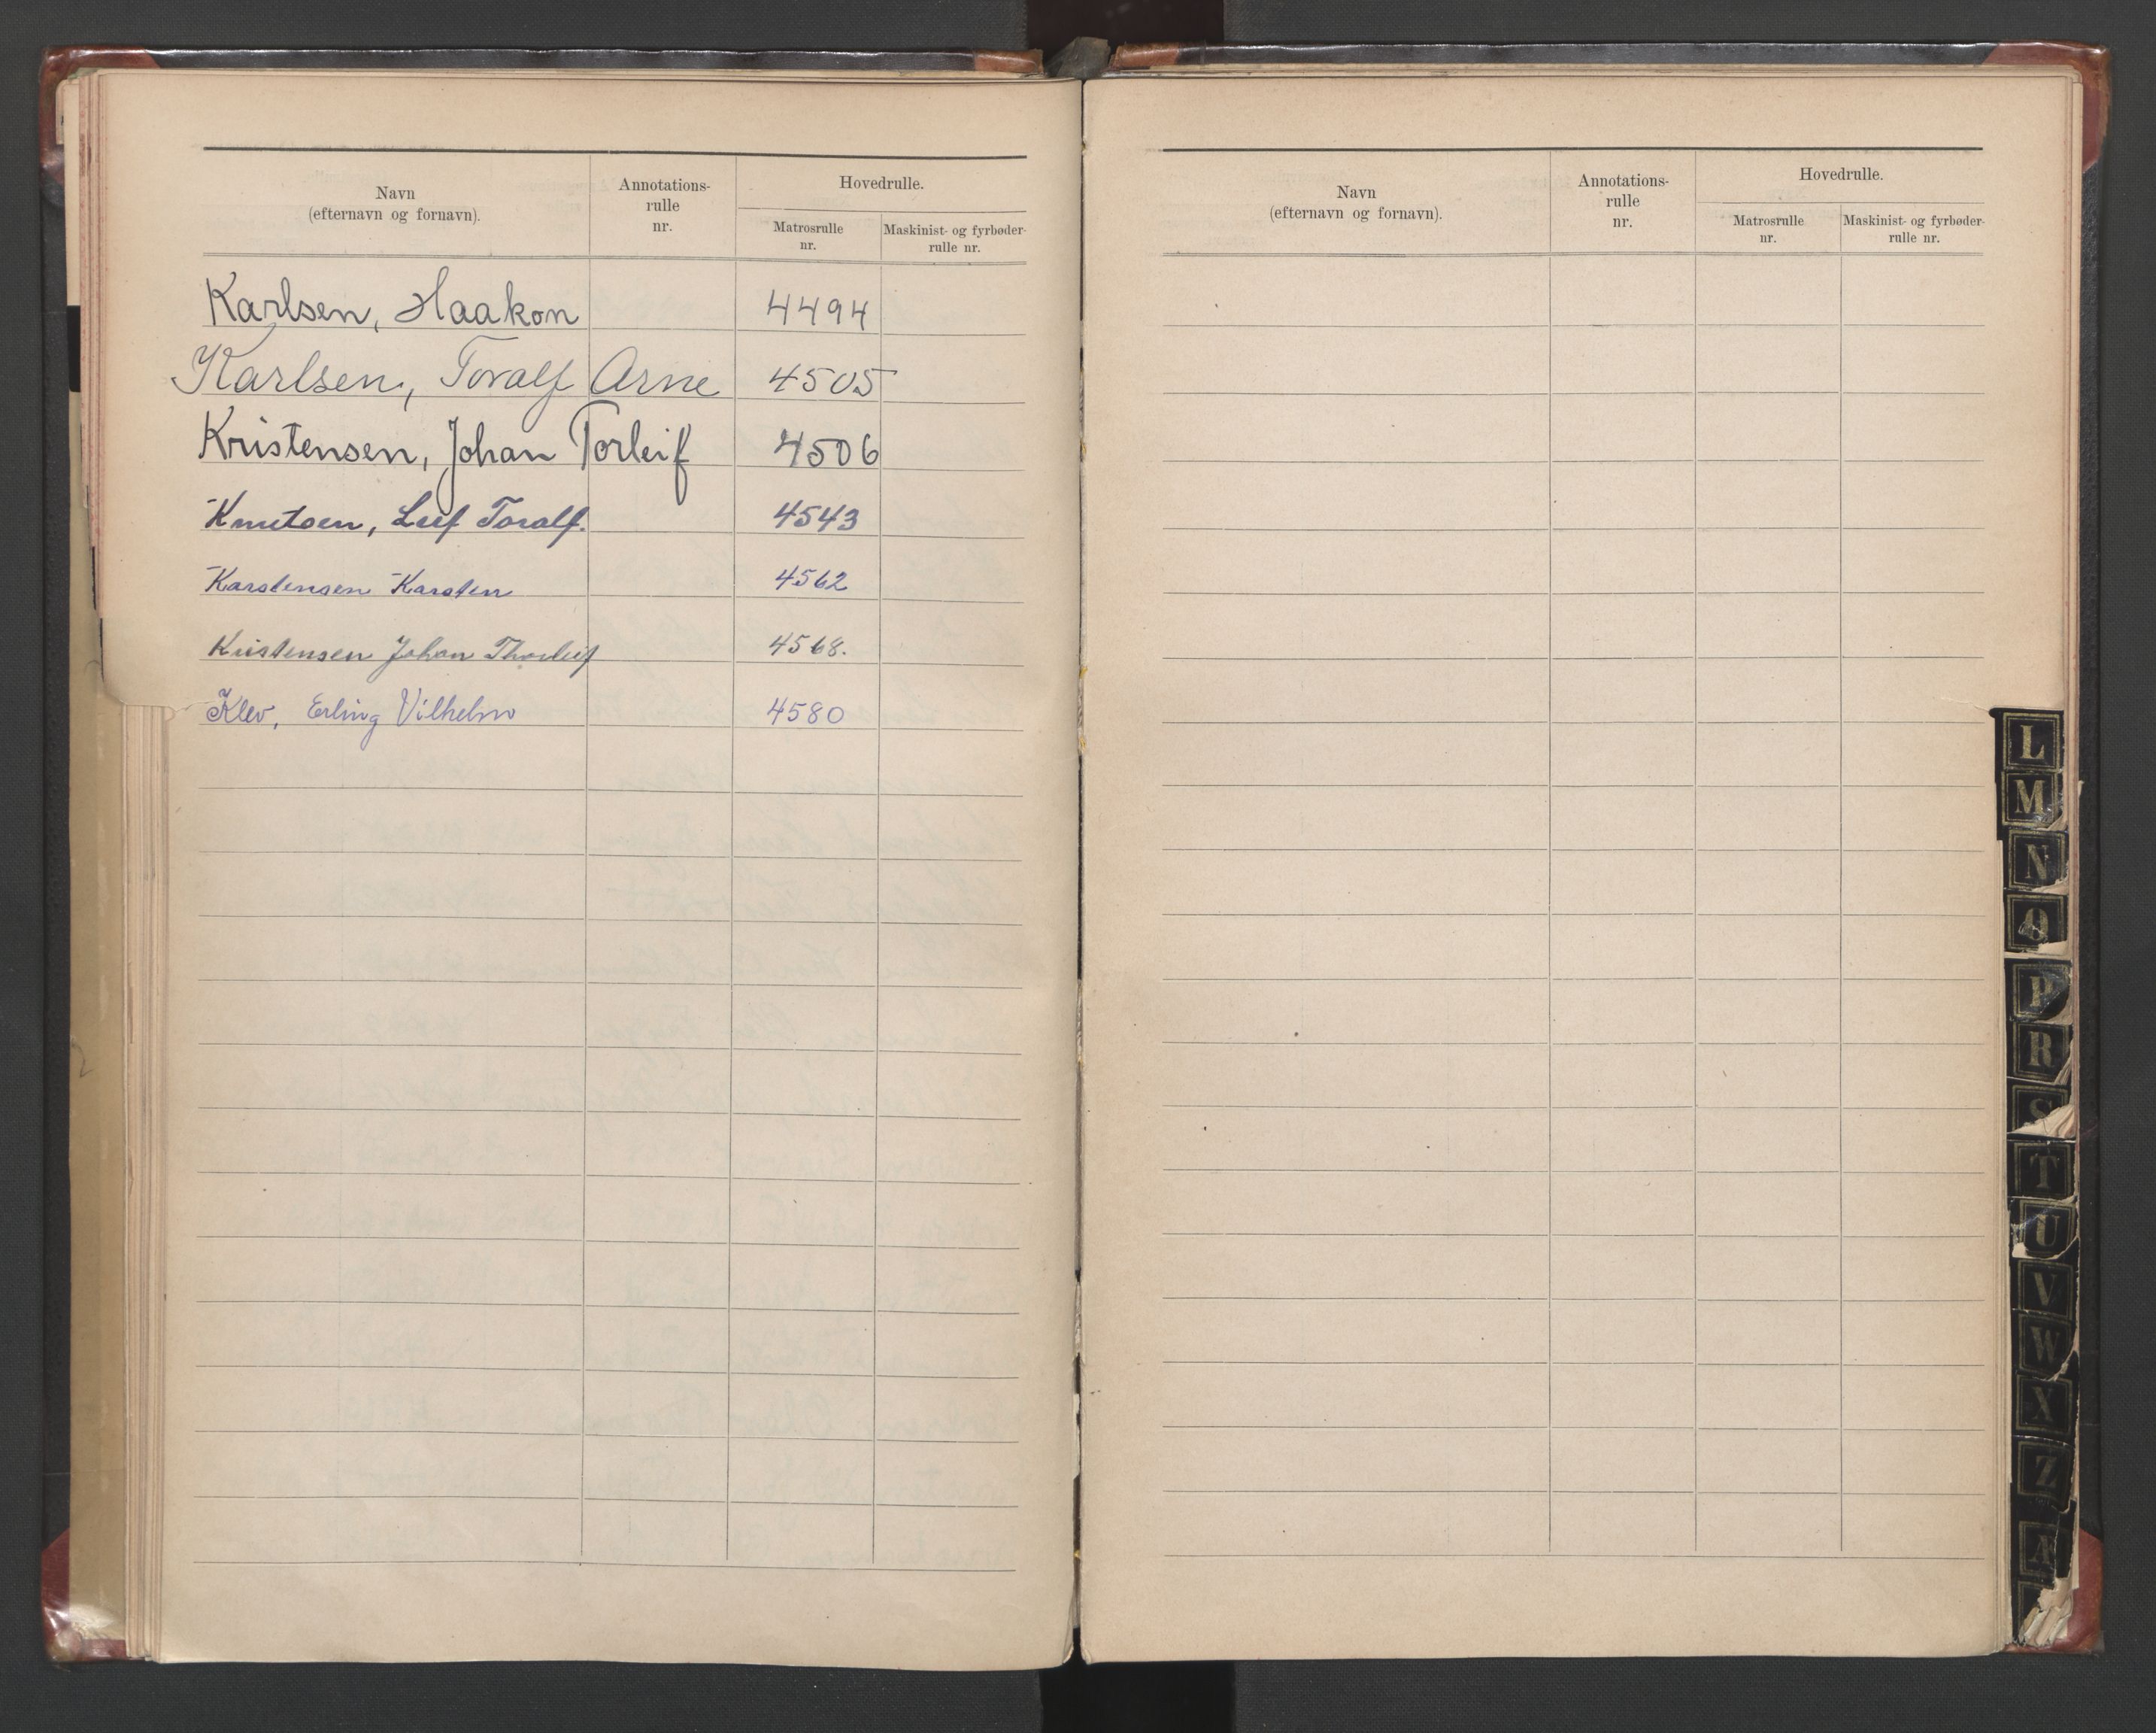 Navn
(efternavn og fornavn).
Annotations-
rulle
nr.
Hovedrulle.
Matrosrulle
nr.
Maskinist- og fyrbøder-
rulle nr.
Karlsen, Haakon 4494
Karlsen, Toralf Arne 4505
Kristensen, Johan Torleif 4506
Knutsen, Leif Toralf. 4543
Karstensen Karsten 4562
Kristensen Johan Thorleif 4568.
Klev, Erling Vilhelm 4580
Navn
(efternavn og fornavn).
Annotations-
rulle
nr.
Hovedrulle.
Matrosrulle
nr.
Maskinist- og fyrbøder-
rulle nr.
L
M
N
O
P
R
S
T
U
V
W
X
Z